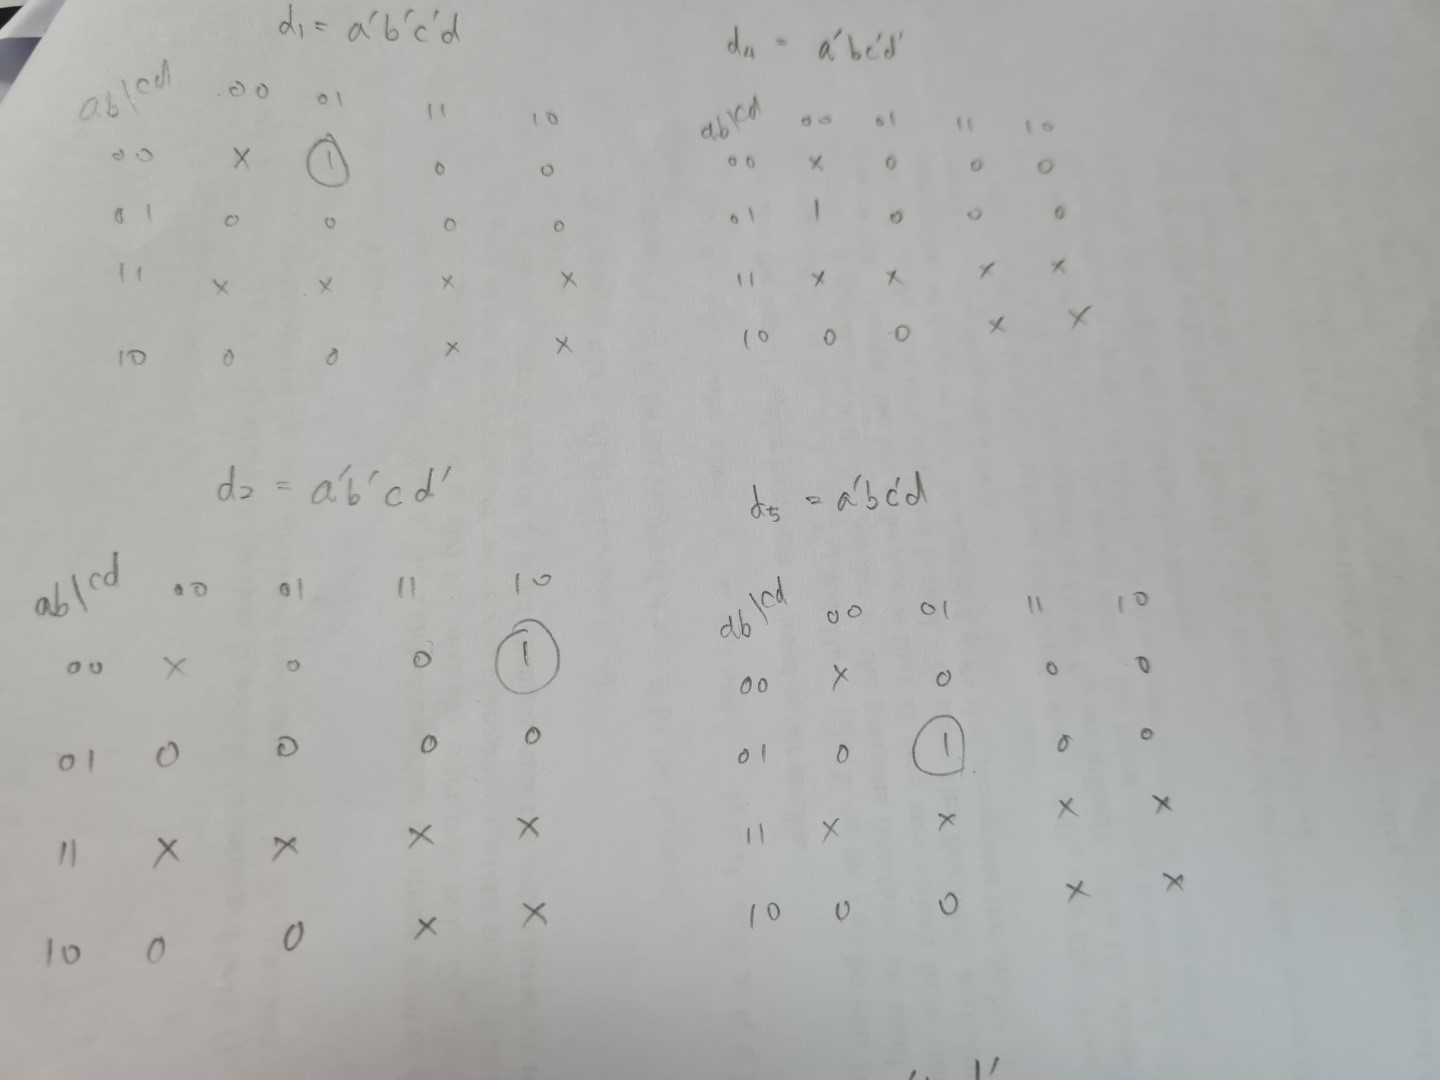 d1 = a'b'c'd
ab\cd 00 01 11 10
00 x 1 0 0
01 0 0 0 0
11 x x x x
10 0 0 x x
d4 = a'bc'd'
ab\cd 00 01 11 10
00 x 0 0 0
01 1 0 0 0
11 x x x x
10 0 0 x x
d2 = a'b'cd'
ab\cd 00 01 11 10
00 x 0 0 1
01 0 0 0 0
11 x x x x
10 0 0 x x
d5 = a'bc'd
ab\cd 00 01 11 10
00 x 0 0 0
01 0 1 0 0
11 x x x x
10 0 0 x x